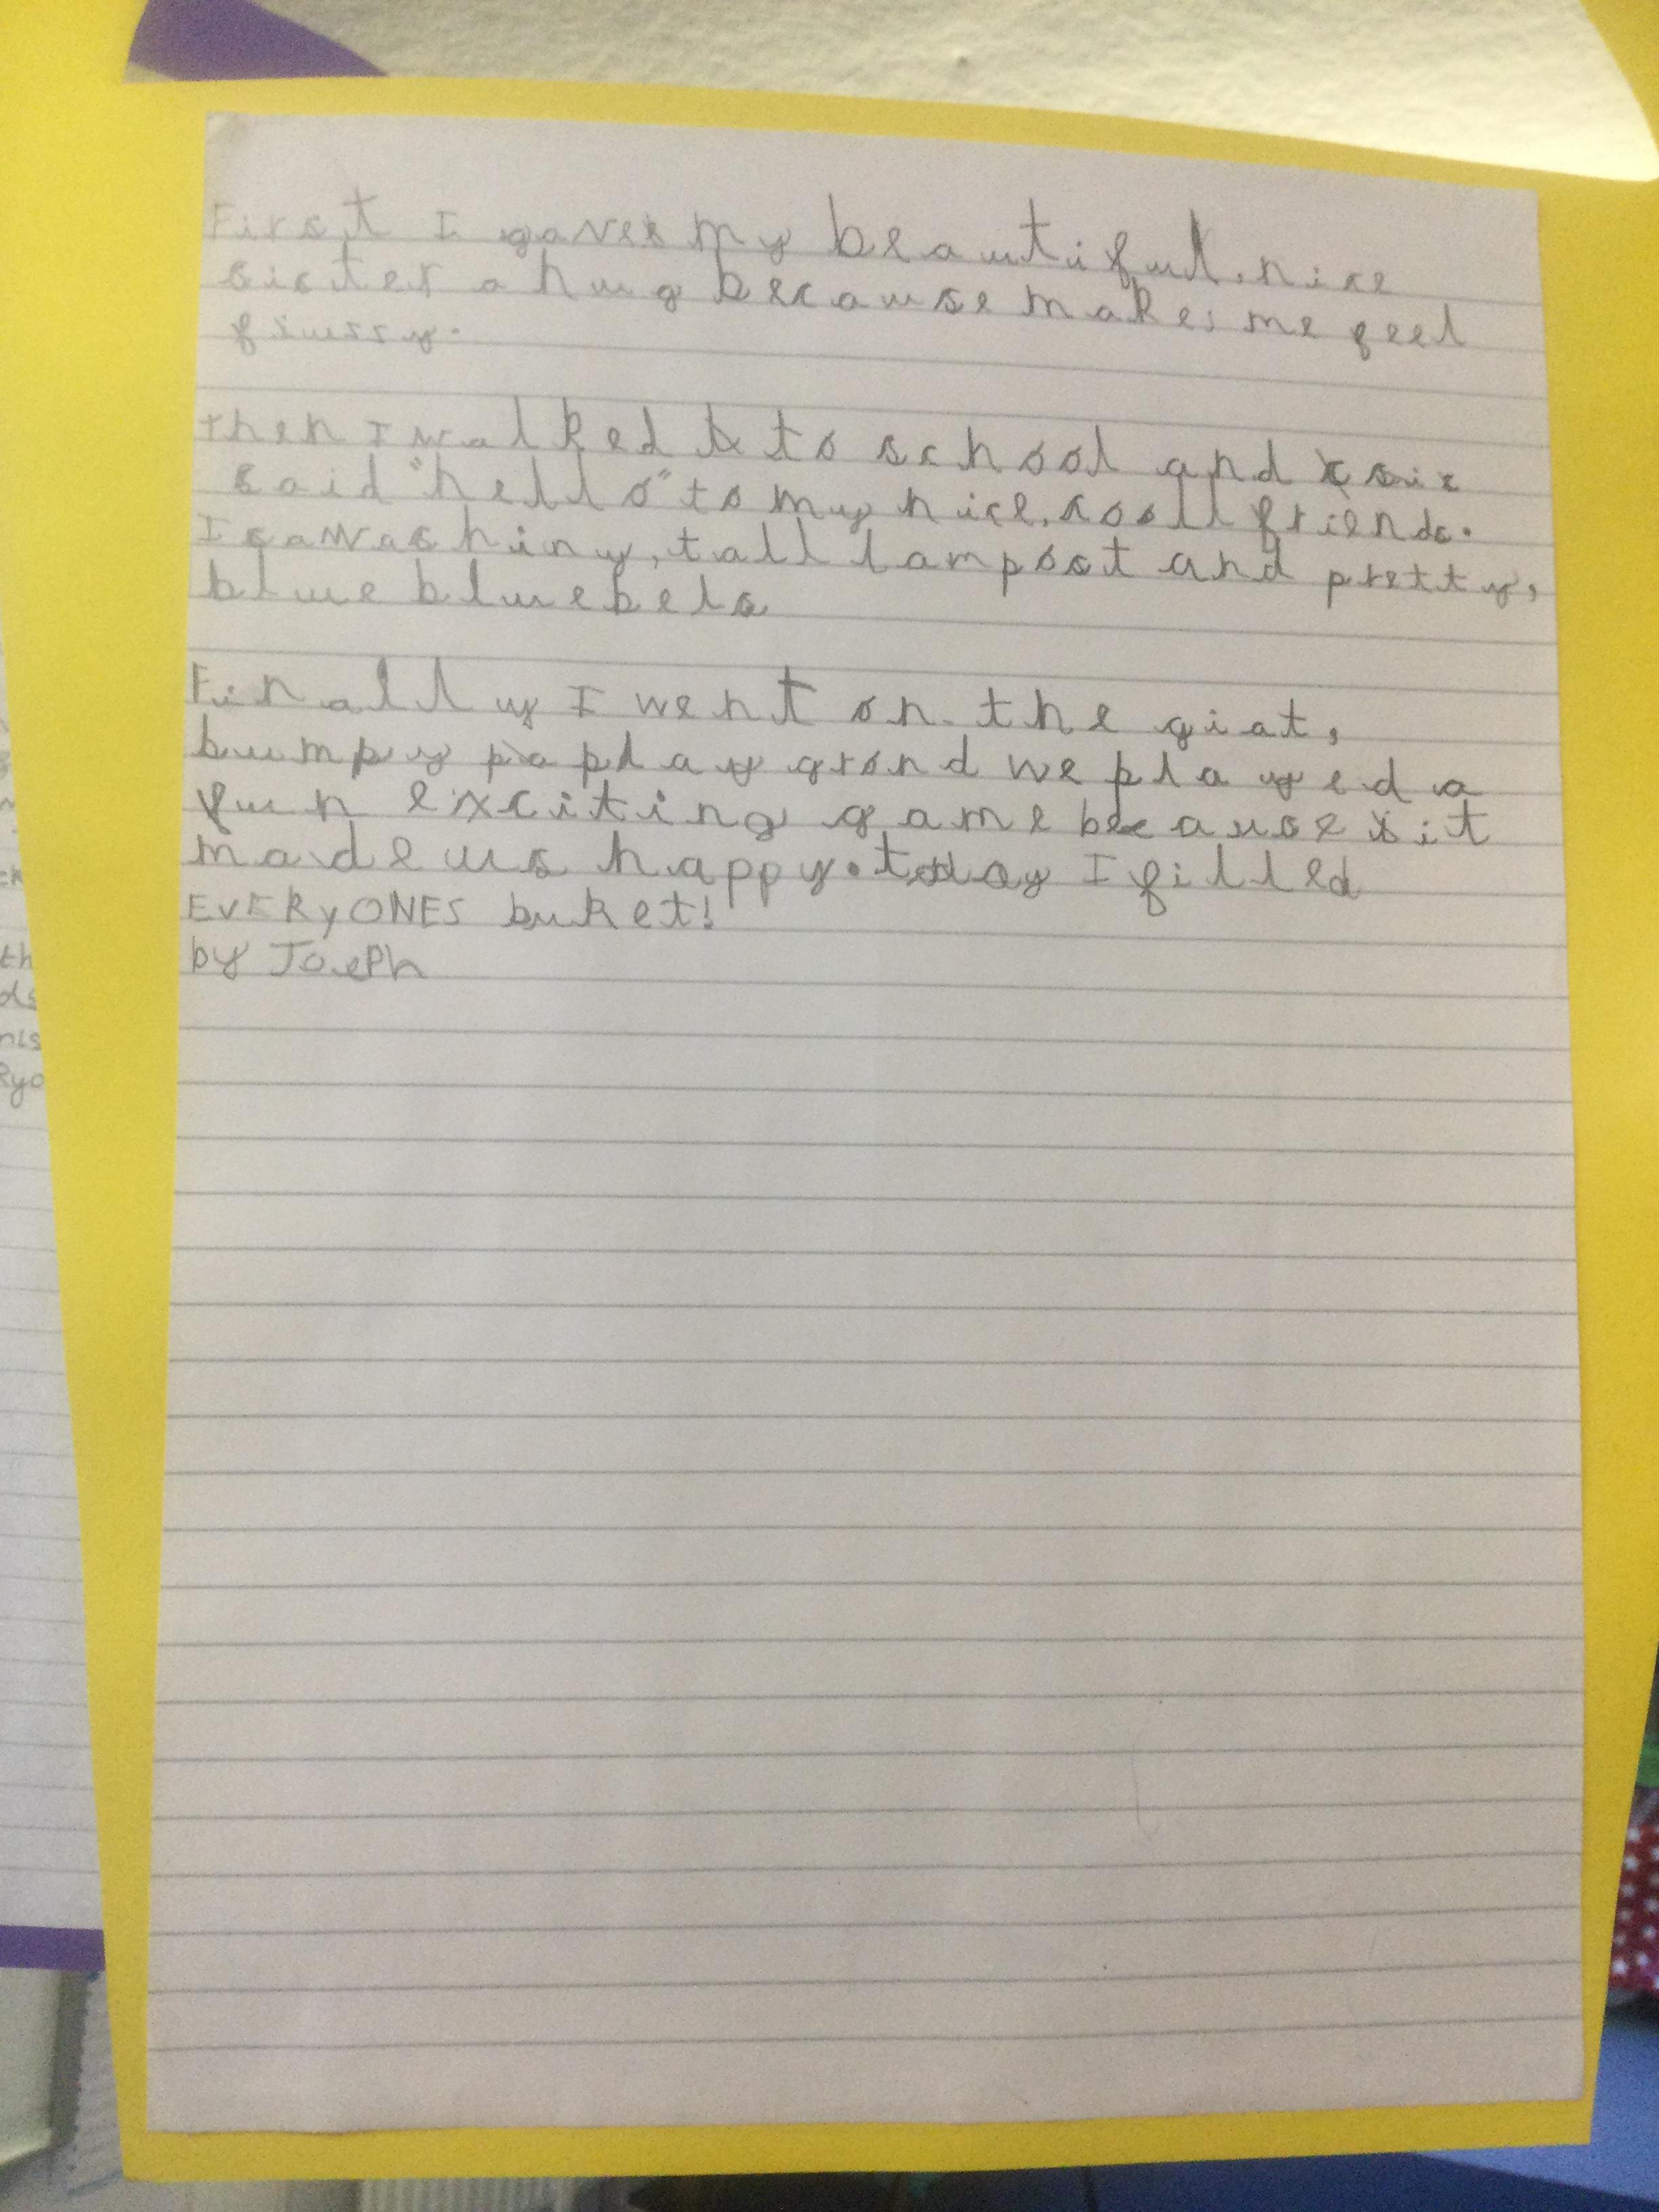 First I gaves my beautiful, nice
sister a hug because makes me feel
then I walked to school and
said "hello" to my nice, cooll friends.
I saw a shiny, tall lampost and pretty,
blue bluebels
Finally I went on the giat,
bumpy playgrond we played a
fun exciting game because it
made us happy. today I filled
EVERyONES buket!
by JosePh
th
ds
nis
Ryo